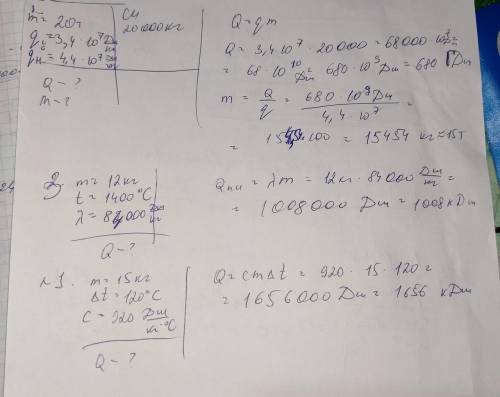 m = 20т
СИ
20000кг
q = 3,4 · 10⁷ Дж/кг
qн = 4,4 · 10⁷ Дж/кг
Q - ?
m - ?
Q = qm
Q = 3,4 · 10⁷ · 20000 = 68000 · 10⁷ =
= 68 · 10¹⁰ Дж = 680 · 10⁹ Дж = 680 ГДж
m = Q/q = 680 · 10⁹ Дж / 4,4 · 10⁷ =
= 100 = 15454 кг ≈ 15т
3
m = 12кг
t = 1400°C
λ = 84000 Дж/кг
Q - ?
Qпл = λm = 12кг · 84000 Дж/кг =
= 1008000 Дж = 1008 кДж
№1.
m = 15кг
Δt = 120°C
C = 920 Дж/кг·°C
Q - ?
Q = cmΔt = 920 · 15 · 120 =
= 1656000 Дж = 1656 кДж